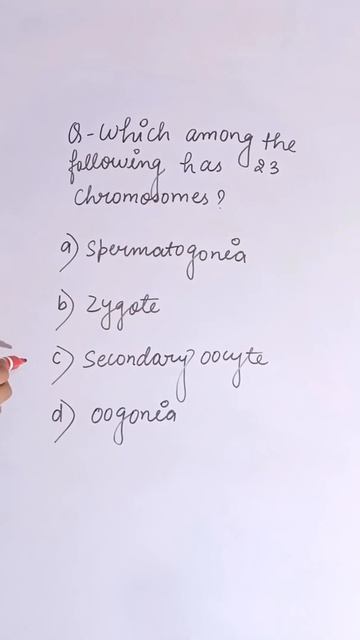 Q-Which among the
following has 23
chromosomes?
a) Spermatogonia
b) Zygote
c) Secondary oocyte
d) oogonia